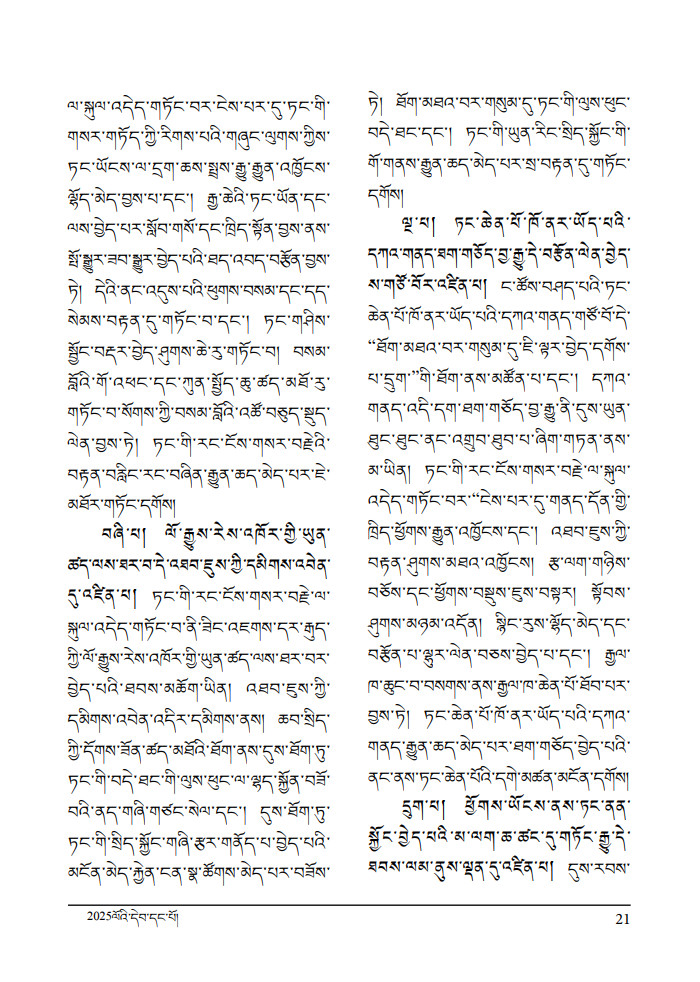 ལ་སྐུལ་འདེད་གཏོང་བར་ངེས་པར་དུ་ཏང་གི་
གསར་གཏོད་ཀྱི་རིགས་པའི་གཞུང་ལུགས་ཀྱིས་
ཏང་ཡོངས་ལ་དྲག་ཆས་སྤྲས་རྒྱུ་རྒྱུན་འཁྱོངས་
ལྷོད་མེད་བྱས་པ་དང་། རྒྱ་ཆེའི་ཏང་ཡོན་དང་
ལས་བྱེད་པར་སློབ་གསོ་དང་ཁྲིད་སྟོན་བྱས་ནས་
སྤོ་སྒྱུར་ཟབ་སྒྱུར་བྱེད་པའི་ཐད་འབད་བརྩོན་བྱས་
ཏེ། དེའི་ནང་འདུས་པའི་ཕུགས་བསམ་དང་དད་
སེམས་བརྟན་དུ་གཏོང་བ་དང་། ཏང་གཤིས་
སྦྱོང་བརྡར་བྱེད་ཤུགས་ཆེ་རུ་གཏོང་བ། བསམ་
བློའི་གོ་འཕང་དང་ཀུན་སྤྱོད་ཆུ་ཚད་མཐོ་རུ་
གཏོང་བ་སོགས་ཀྱི་བསམ་བློའི་འཚོ་བཅུད་སྡུད་
ལེན་བྱས་ཏེ། ཏང་གི་རང་ངོས་གསར་བརྗེའི་
བརྟན་བརླིང་རང་བཞིན་རྒྱུན་ཆད་མེད་པར་ཇེ་
མཐོར་གཏོང་དགོས།
བཞི་པ། ལོ་རྒྱུས་རེས་འཁོར་གྱི་ཡུན་
ཚད་ལས་ཐར་བ་དེ་འཐབ་ཇུས་ཀྱི་དམིགས་འབེན་
དུ་འཛིན་པ། ཏང་གི་རང་ངོས་གསར་བརྗེ་ལ་
སྐུལ་འདེད་གཏོང་བ་ནི་ཟིང་འཇགས་དར་རྒུད་
ཀྱི་ལོ་རྒྱུས་རེས་འཁོར་གྱི་ཡུན་ཚད་ལས་ཐར་བར་
བྱེད་པའི་ཐབས་མཆོག་ཡིན། འཐབ་ཇུས་ཀྱི་
དམིགས་འབེན་འདིར་དམིགས་ནས། ཆབ་སྲིད་
ཀྱི་དོགས་ཟོན་ཚད་མཐོའི་ཐོག་ནས་དུས་ཐོག་ཏུ་
ཏང་གི་བདེ་ཐང་གི་ལུས་ཕུང་ལ་ལྷད་སྐྱོན་བཟོ་
བའི་ནད་གཞི་གཙང་སེལ་དང་། དུས་ཐོག་ཏུ་
ཏང་གི་སྲིད་སྐྱོང་གཞི་རྩར་གནོད་པ་བྱེད་པའི་
མངོན་མེད་རྐྱེན་ངན་སྣ་ཚོགས་མེད་པར་བཟོས་
ཏེ། ཐོག་མཐའ་བར་གསུམ་དུ་ཏང་གི་ལུས་ཕུང་
བདེ་ཐང་དང་། ཏང་གི་ཡུན་རིང་སྲིད་སྐྱོང་གི་
གོ་གནས་རྒྱུན་ཆད་མེད་པར་སྲ་བརྟན་དུ་གཏོང་
དགོས།
ལྔ་པ། ཏང་ཆེན་པོ་ཁོ་ནར་ཡོད་པའི་
དཀའ་གནད་ཐག་གཅོད་བྱ་རྒྱུ་དེ་བརྩོན་ལེན་བྱེད་
ས་གཙོ་བོར་འཛིན་པ། ང་ཚོས་བཤད་པའི་ཏང་
ཆེན་པོ་ཁོ་ནར་ཡོད་པའི་དཀའ་གནད་གཙོ་བོ་དེ་
“ཐོག་མཐའ་བར་གསུམ་དུ་ཇི་ལྟར་བྱེད་དགོས་
པ་དྲུག་”གི་ཐོག་ནས་མཚོན་པ་དང་། དཀའ་
གནད་འདི་དག་ཐག་གཅོད་བྱ་རྒྱུ་ནི་དུས་ཡུན་
ཐུང་ཐུང་ནང་འགྲུབ་ཐུབ་པ་ཞིག་གཏན་ནས་
མ་ཡིན། ཏང་གི་རང་ངོས་གསར་བརྗེ་ལ་སྐུལ་
འདེད་གཏོང་བར་“ངེས་པར་དུ་གནད་དོན་གྱི་
ཁྲིད་ཕྱོགས་རྒྱུན་འཁྱོངས་དང་། འཐབ་ཇུས་ཀྱི་
བརྟན་ཤུགས་མཐའ་འཁྱོངས། རྩ་ལག་གཉིས་
བཅོས་དང་ཕྱོགས་བསྡུས་ཇུས་བསྟར། སྟོབས་
ཤུགས་མཉམ་འདོན། སྙིང་རུས་ལྷོད་མེད་དང་
བརྩོན་པ་ལྷུར་ལེན་བཅས་བྱེད་པ་དང་། རྒྱལ་
ཁ་ཆུང་བ་བསགས་ནས་རྒྱལ་ཁ་ཆེན་པོ་ཐོབ་པར་
བྱས་ཏེ། ཏང་ཆེན་པོ་ཁོ་ནར་ཡོད་པའི་དཀའ་
གནད་རྒྱུན་ཆད་མེད་པར་ཐག་གཅོད་བྱེད་པའི་
ནང་ནས་ཏང་ཆེན་པོའི་དགེ་མཚན་མངོན་དགོས།
དྲུག་པ། ཕྱོགས་ཡོངས་ནས་ཏང་ནན་
སྐྱོང་བྱེད་པའི་མ་ལག་ཆ་ཚང་དུ་གཏོང་རྒྱུ་དེ་
ཐབས་ལམ་ནུས་ལྡན་དུ་འཛིན་པ། དུས་རབས་
2025ལོའི་དེབ་དང་པོ།
21